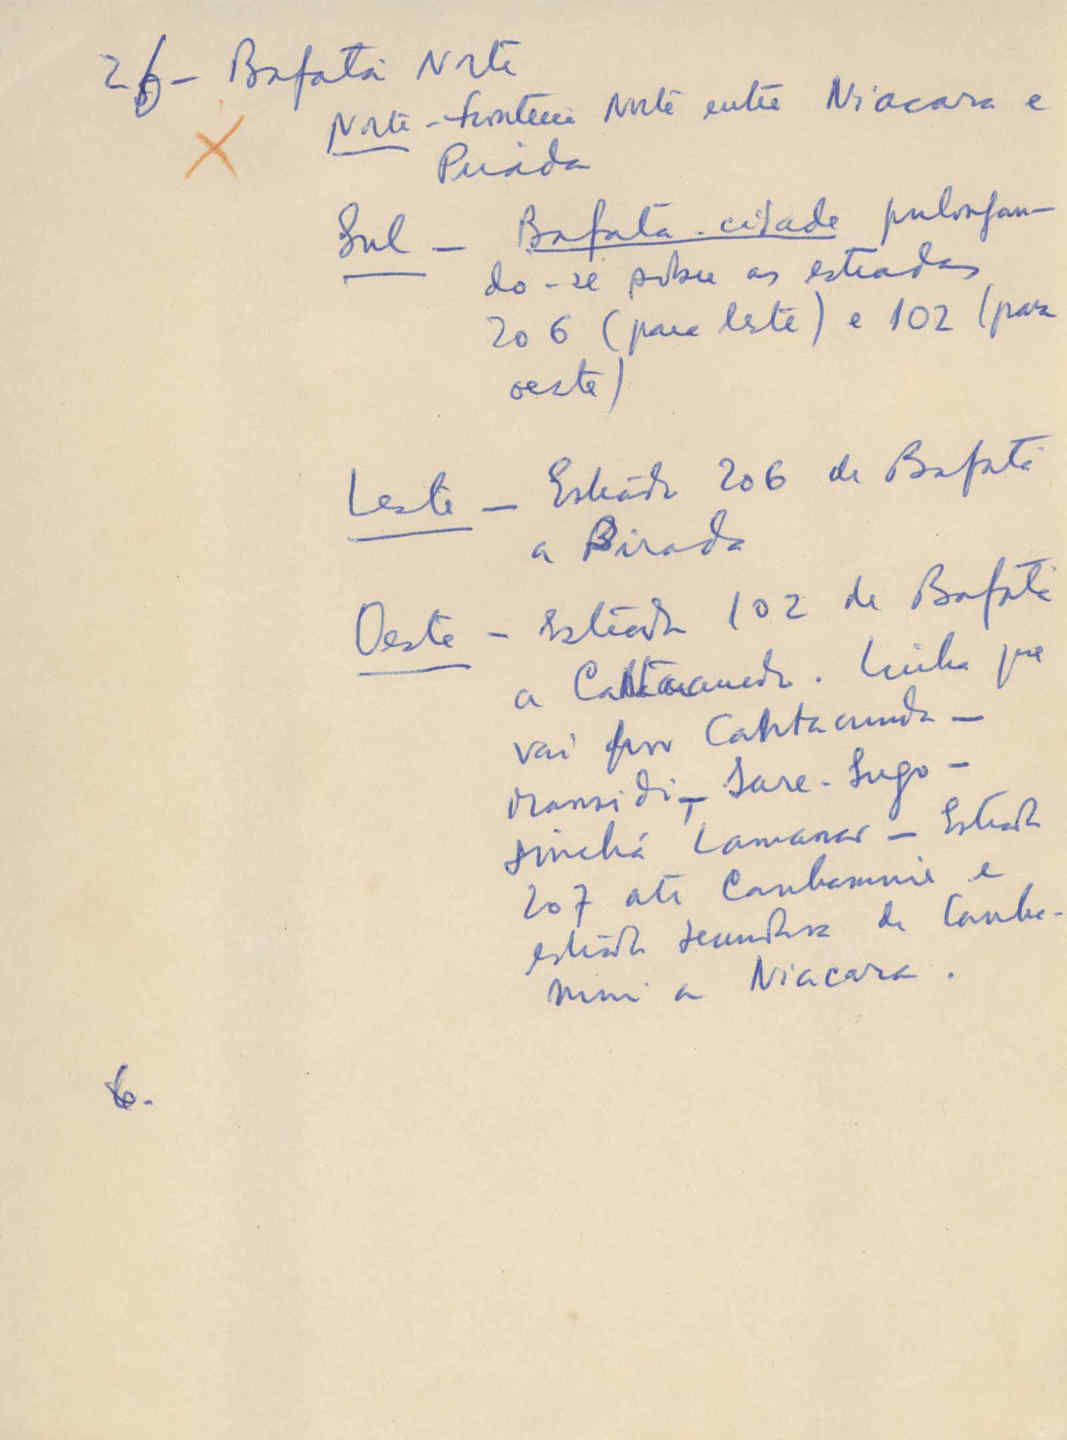 26 - Bafatá Norte
Norte - fronteira Norte entre Niacara e
Pirada
Sul - Bafatá-cidade prolongan-
do-se sobre as estradas
206 (para leste) e 102 (para
oeste)
Leste - Estrada 206 de Bafatá
a Pirada
Oeste - Estrada 102 de Bafatá
a Cantacunda. Linha que
vai por Cantacunda -
Mansidi - Sare-Sugo -
Sinchã Lamanar - Estrada
207 até Cambamnie e
estrada secundária de Camba-
mni a Niacara.
6.